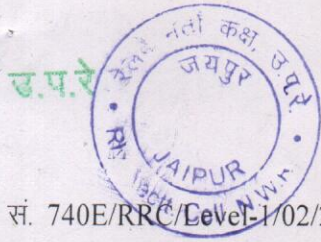 उ.प.रे
रेलवे भर्ती कक्ष, उ.प.रे.
जयपुर
JAIPUR
Cell N.W.R
सं. 740E/RRC/Level-1/02/2